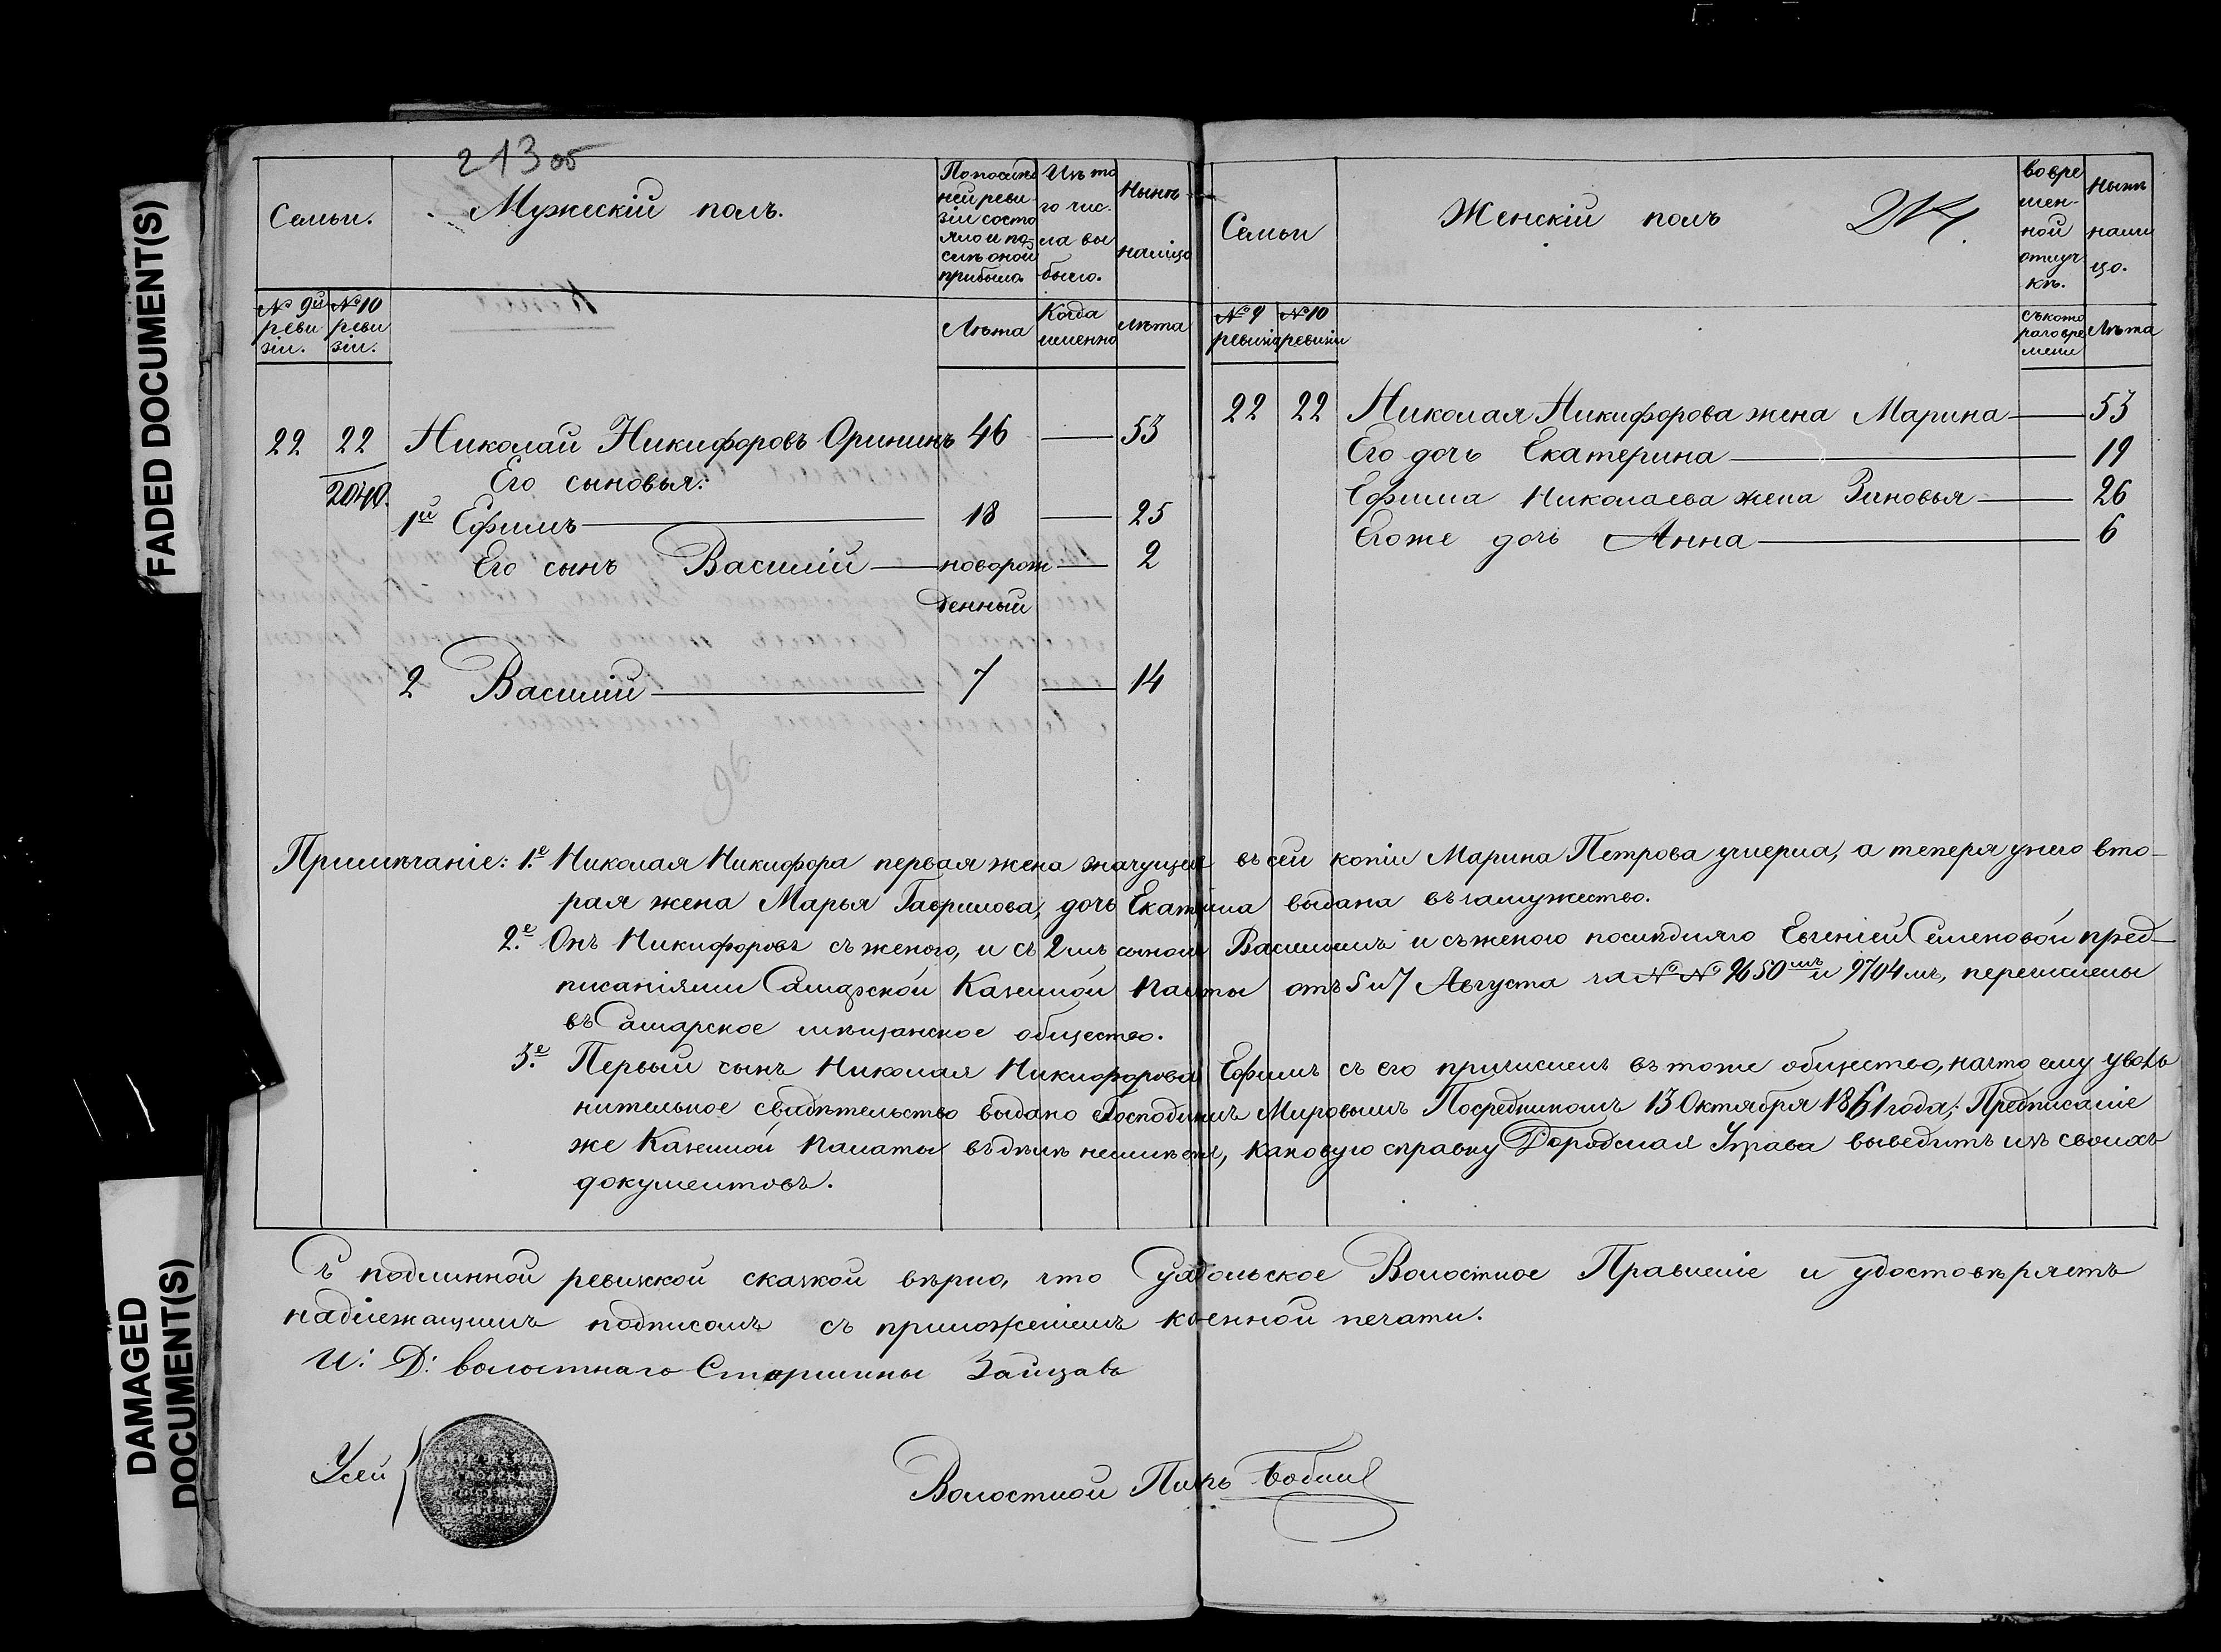 FADED DOCUMENT(S)
DAMAGED DOCUMENT(S)
213 об
Семьи.
Мужескій полъ.
По послѣд
ней реви
зіи состо
яло и по
слѣ оной
прибыло
Изъ то
го чис
ла вы
было.
Нынѣ
налицо
№ 9й
реви
зіи.
№ 10
реви
зіи.
Лѣта
Когда
именно
Лѣта
22 22 Николай Никифоровъ Орининъ 46 — 53
2040. Его сыновья:
1й Ефимъ — 18 — 25
Его сынъ Василій — новорож — 2
денный
2 Василій — 7 — 14
96
Семьи
Женскій полъ
214
во вре
мен-
ной
отлуч
кѣ.
Нынѣ
нали
цо.
№ 9
ревизіи
№ 10
ревизіи
съ кото
раго вре
мени
Лѣта
22 22 Николая Никифорова жена Марина — 53
Его дочь Екатерина — 19
Ефима Николаева жена Зиновья — 26
Его же дочь Анна — 6
Примѣчаніе: 1.е Николая Никифора первая жена значущей въ сей копіи Марина Петрова умерла, а теперя унего вто-
рая жена Марья Гаврилова, дочь Екатрина выдана въ замужество.
2.е Онъ Никифоровъ съ женою, и съ 2мъ сыномъ Васильемъ и съ женою послѣдняго Евгеніей Семеновой пред-
писаніями Самарской Казенной Палаты отъ 5 и 7 Августа за №№ 9650мъ и 9704мъ, перечислены
въ Самарское мѣщанское общество.
3.е Первый сынъ Николая Никифорова Ефимъ съ его причисленъ въ тоже общество, начто ему уволь
нительное свидѣтельство выдано Господиномъ Мировымъ Посредникомъ 13 Октября 1861 года; Предписаніе
же Казенной Палаты въ дѣлѣ неимѣетя, каковую справку Городская Управа выведитъ изъ своихъ
документовъ.
Съ подлинной ревизкой сказкой вѣрно, что Волостное Правленіе и удостовѣряетъ
надлежащимъ подписомъ съ приложеніемъ казенной печати.
И: Д: волостнаго Старшины Зайцавъ
Усей
Волостной Писрь